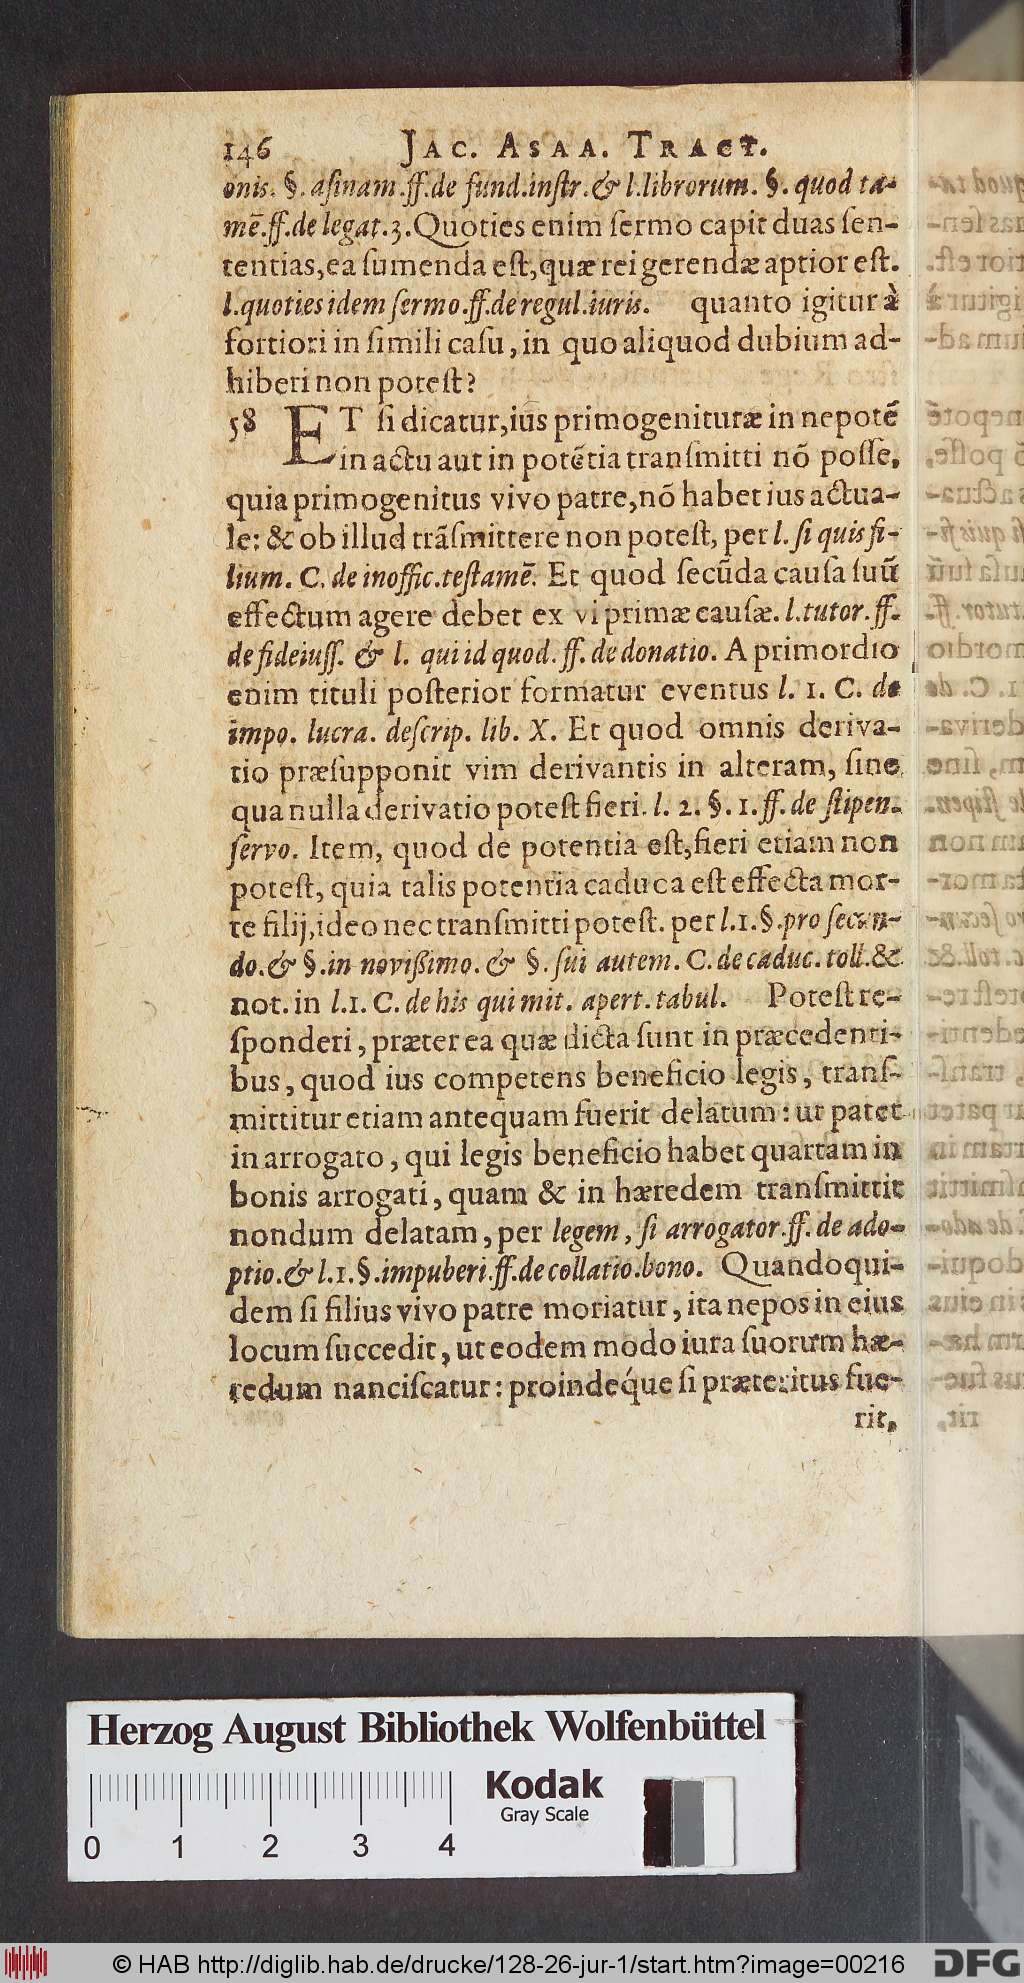 146 JAC. ASAA. TRACT.
onis. §. aſinam.ff.de fund.inſtr.& l.librorum. §. quod ta-
mē.ff.de legat.3.Quoties enim ſermo capit duas ſen-
tentias,ea ſumenda eſt,quæ rei gerendæ aptior eſt.
l.quoties idem ſermo.ff.de regul.iuris. quanto igitur à
fortiori in ſimili caſu, in quo aliquod dubium ad-
hiberi non poteſt?
58 ET ſi dicatur,ius primogenituræ in nepotē
in actu aut in potētia tranſmitti nō poſſe,
quia primogenitus vivo patre,nō habet ius actua-
le: & ob illud trāſmittere non poteſt, per l. ſi quis fi-
lium. C. de inoffic.teſtamē. Et quod ſecūda cauſa ſuū
effectum agere debet ex vi primæ cauſæ. l.tutor. ff.
de fideiuſſ. & l. qui id quod. ff. de donatio. A primordio
enim tituli poſterior formatur eventus l. 1. C. de
impo. lucra. deſcrip. lib. X. Et quod omnis deriva-
tio præſupponit vim derivantis in alteram, ſine
qua nulla derivatio poteſt fieri. l. 2. §. 1. ff. de ſtipen.
ſervo. Item, quod de potentia eſt,fieri etiam non
poteſt, quia talis potentia caduca eſt effecta mor-
te filij,ideo nec tranſmitti poteſt. per l.1.§.pro ſecun-
do.& §.in noviſſimo. & §. ſui autem. C.de caduc. toll.&
not. in l.1. C. de his qui mit. apert. tabul. Poteſt re-
ſponderi, præter ea quæ dicta ſunt in præcedenti-
bus, quod ius competens beneficio legis, tranſ-
mittitur etiam antequam fuerit delatum: ut patet
in arrogato, qui legis beneficio habet quartam in
bonis arrogati, quam & in hæredem tranſmittit
nondum delatam, per legem, ſi arrogator.ff. de ado-
ptio.& l.1.§.impuberi.ff.de collatio.bono. Quandoqui-
dem ſi filius vivo patre moriatur, ita nepos in eius
locum ſuccedit, ut eodem modo iura ſuorum hæ-
redum nanciſcatur: proindéque ſi præteritus fue-
rit,
Herzog August Bibliothek Wolfenbüttel
Kodak
Gray Scale
0 1 2 3 4
© HAB http://diglib.hab.de/drucke/128-26-jur-1/start.htm?image=00216
DFG